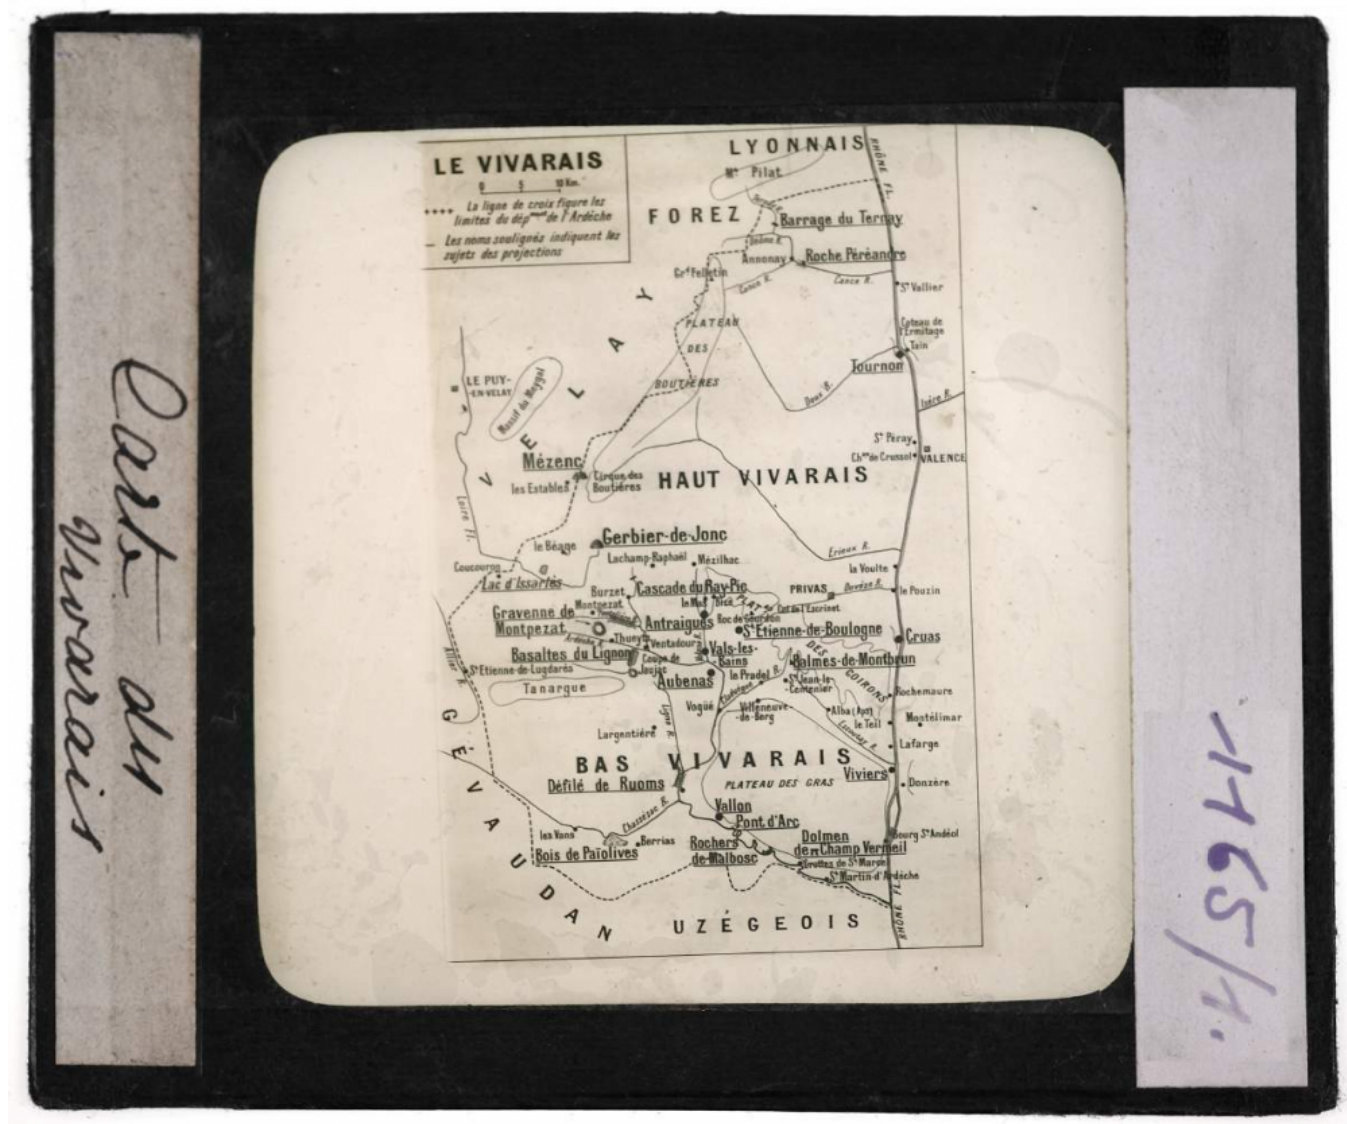 Carte du
Vivarais
1165/1.
LE VIVARAIS
0 5 10 Km.
La ligne de croix figure les
limites du dépᵐᵉⁿᵗ de l'Ardèche
Les noms soulignés indiquent les
sujets des projections
LYONNAIS
RHÔNE FL.
Mᵗ Pilat
FOREZ
Barrage du Ternay
Deûme R.
Annonay
Roche Péréandre
Gᵈ Felletin
Cance R.
Cance R.
Sᵗ Vallier
VELAY
PLATEAU
DES
BOUTIÈRES
Coteau de
l'Ermitage
Tain
Tournon
Doux R.
Isère R.
LE PUY-
-EN-VELAY
Massif du Meygal
Sᵗ Péray
Chᵃᵘ de Crussol
VALENCE
Mézenc
les Estables
Cirque des
Boutières
HAUT VIVARAIS
Loire Fl.
Gerbier-de-Jonc
le Béage
Lachamp-Raphaël
Mézilhac
Erieux R.
la Voulte
Coucouron
Lac d'Issarlès
Burzet
Cascade du Ray-Pic
PRIVAS
Ouvèze R.
le Pouzin
Gravenne de
Montpezat
Montpezat
Antraigues
Col de l'Escrinet
Roc de Gourdon
Sᵗ Etienne-de-Boulogne
Cruas
Ardèche R.
Thueyts
Ventadour
Basaltes du Lignon
Coupe de
Jaujac
Vals-les-
-Bains
PLATᵘ
DES
COIRONS
Balmes-de-Montbrun
Allier R.
Sᵗ Etienne-de-Lugdarès
Tanargue
Aubenas
le Pradel
Sᵗ Jean-le-
-Centenier
Rochemaure
Vogüé
Villeneuve
-de-Berg
Alba (Aps)
le Teil
Montélimar
Largentière
Ligne R.
Escoutay R.
Lafarge
GÉVAUDAN
BAS VIVARAIS
Défilé de Ruoms
PLATEAU DES GRAS
Viviers
Donzère
Chassezac R.
Vallon
Pont d'Arc
les Vans
Berrias
Bois de Païolives
Rochers
de Malbosc
Dolmen
de Champ Vermeil
Bourg Sᵗ Andéol
Grottes de Sᵗ Marcel
Sᵗ Martin d'Ardèche
UZÉGEOIS
RHÔNE FL.